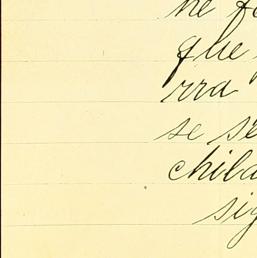 ne f
que
rra
se se
child
sig